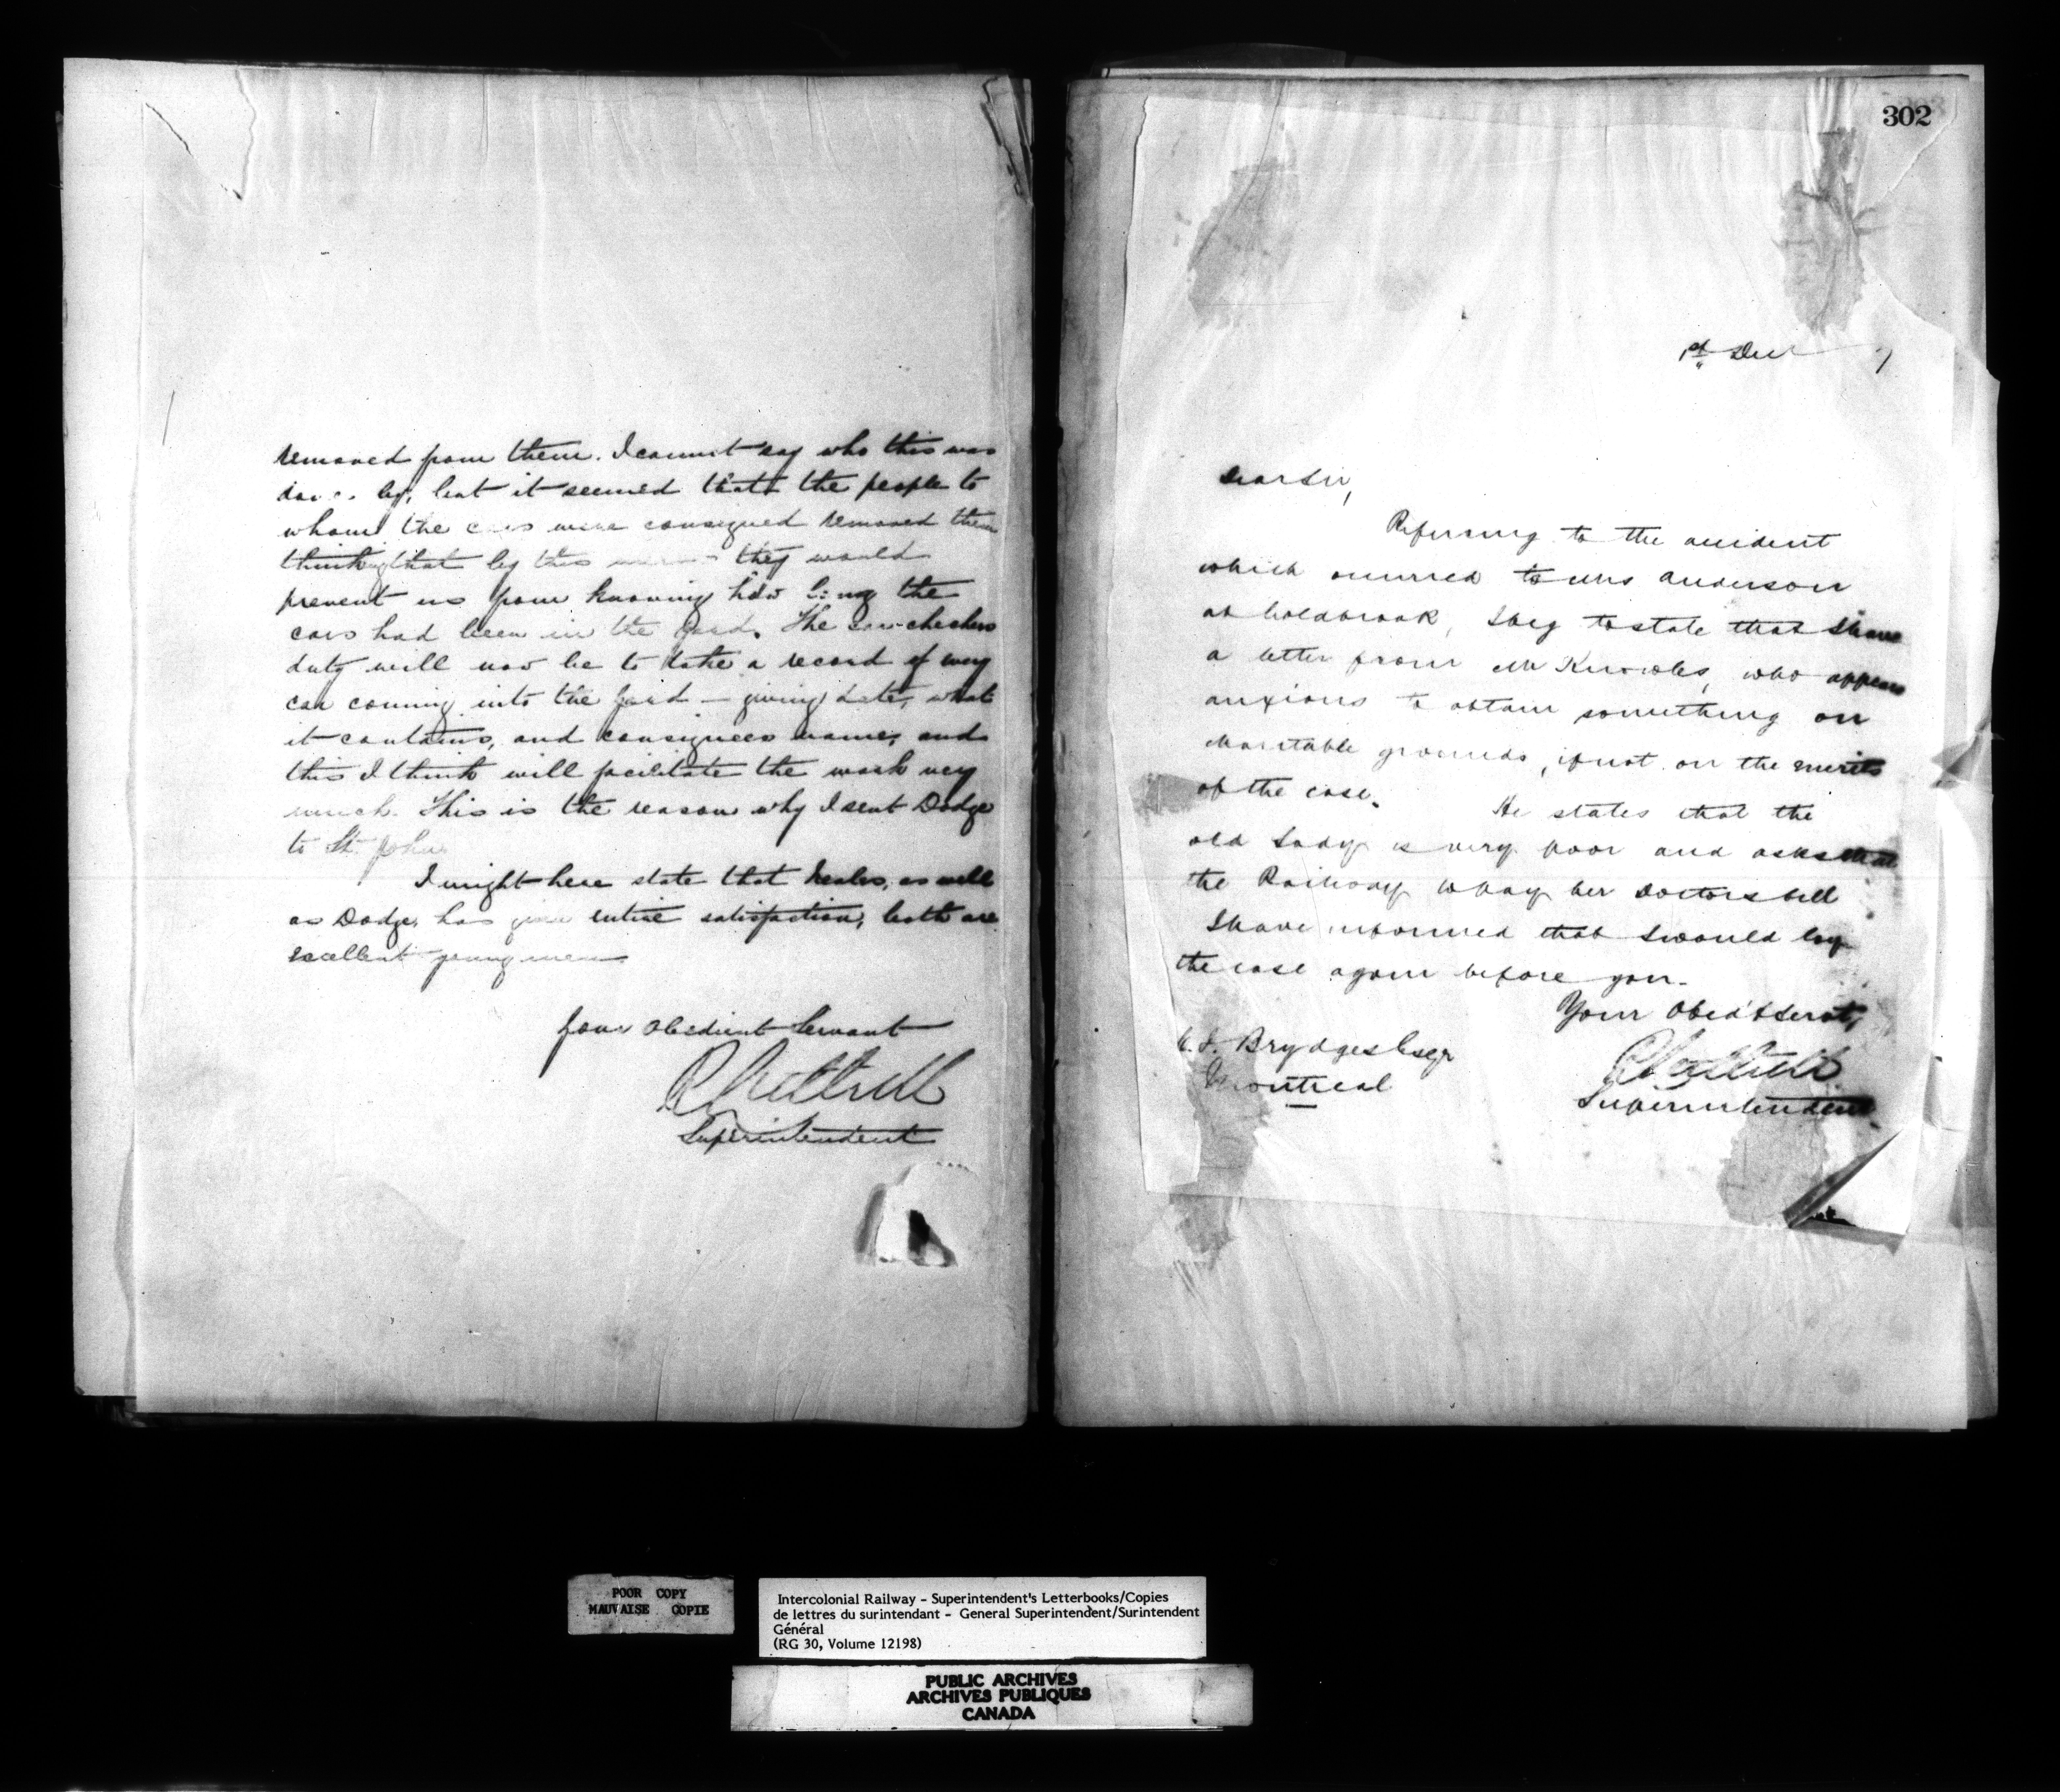 removed from them. I cannot say who this was
done by, but it seemed that the people to
whom the cars were consigned removed them
thinking that by this means they would
prevent us from knowing how long the
cars had been in the yard. The car checkers
duty will now be to take a record of every
car coming into the yard — giving date, what
it contains, and consignees name, and
this I think will facilitate the work very
much. This is the reason why I sent Dodge
to St. John
I might here state that as well
as Dodge, has given entire satisfaction, both are
excellent young men.
Your Obedient Servant
Superintendent
302
1st Decr 7
Dear Sir,
Referring to the accident
which occurred to Mrs Anderson
at Coldbrook, I beg to state that I have
a letter from Mr Knowles, who appears
anxious to obtain something on
charitable grounds, if not on the merits
of the case.
He states that the
old Lady is very poor and asks that
the Railway to pay her Doctors bill
I have informed that I would lay
the case again before you.
Your Obed't Servt,
C. J. Brydges Esqr
Montreal
Superintendent
POOR COPY
MAUVAISE COPIE
Intercolonial Railway - Superintendent's Letterbooks/Copies
de lettres du surintendant - General Superintendent/Surintendent
Général
(RG 30, Volume 12198)
PUBLIC ARCHIVES
ARCHIVES PUBLIQUES
CANADA